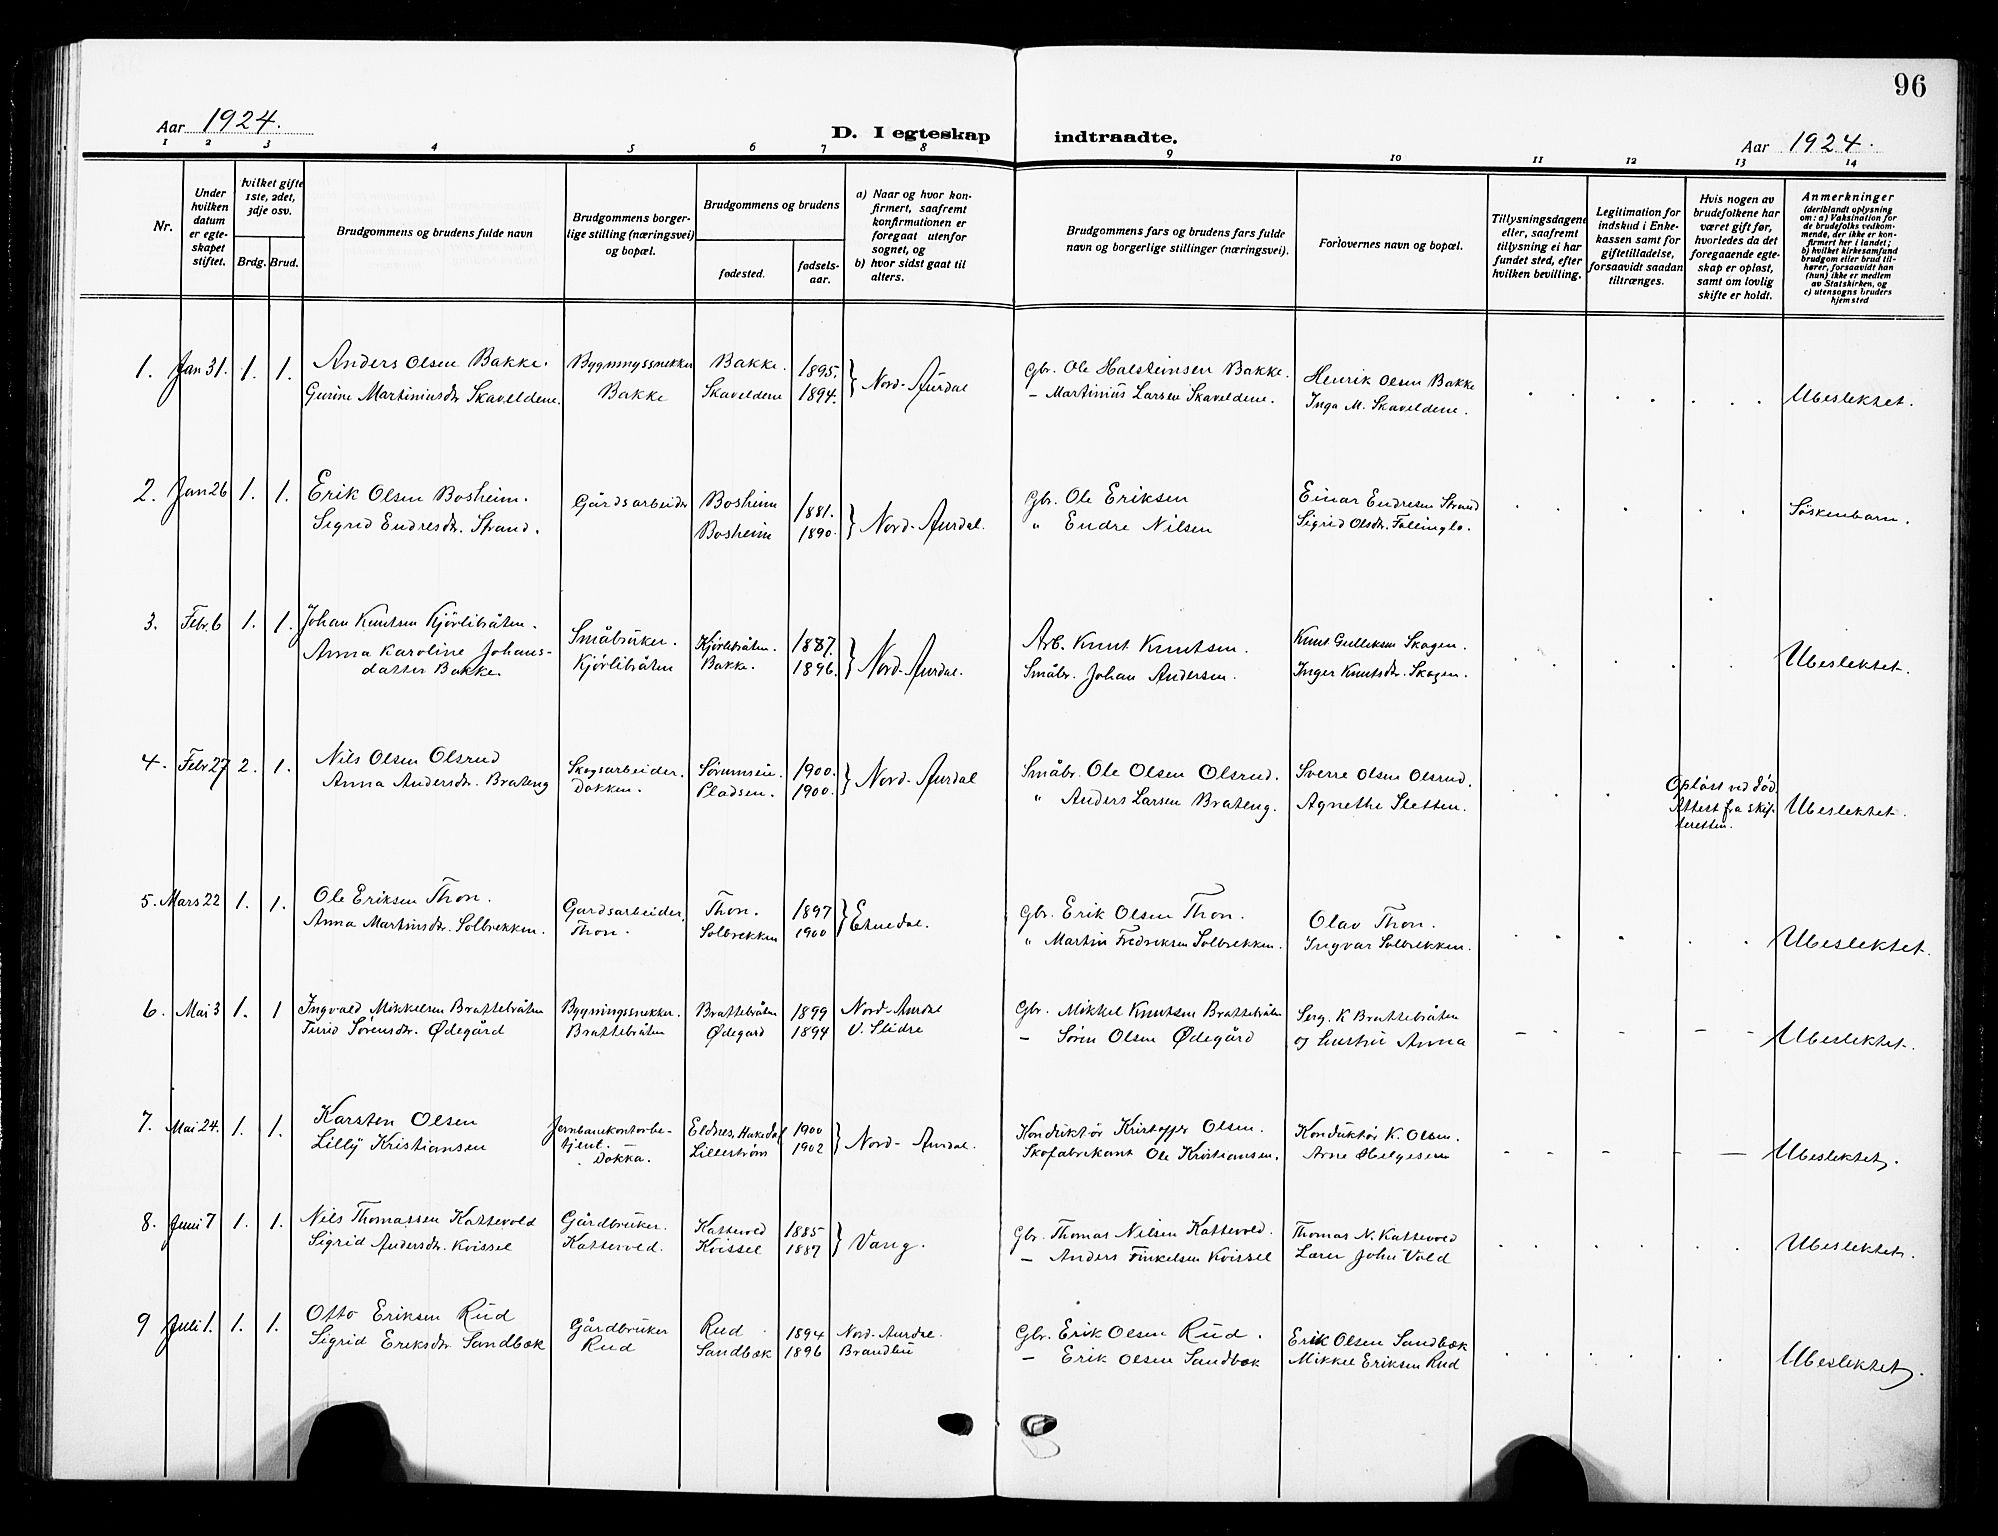 96
Aar 1924.
D. I egteskap indtraadte.
Aar 1924.
1 2 3 4 5 6 7 8 9 10 11 12 13 14
Nr.
Under
hvilken
datum
er egte-
skapet
stiftet.
hvilket gifte
1ste, 2det,
3dje osv.
Brdg. Brud.
Brudgommens og brudens fulde navn
Brudgommens borger-
lige stilling (næringsvei)
og bopæl.
Brudgommens og brudens
fødested.
fødsels-
aar.
a) Naar og hvor kon-
firmert, saafremt
konfirmationen er
foregaat utenfor
sognet, og
b) hvor sidst gaat til
alters.
Brudgommens fars og brudens fars fulde
navn og borgerlige stillinger (næringsvei).
Forlovernes navn og bopæl.
Tillysningsdagene
eller, saafremt
tillysning ei har
fundet sted, efter
hvilken bevilling.
Legitimation for
indskud i Enke-
kassen samt for
giftetilladelse,
forsaavidt saadan
tiltrænges.
Hvis nogen av
brudefolkene har
været gift før,
hvorledes da det
foregaaende egte-
skap er opløst,
samt om lovlig
skifte er holdt.
Anmerkninger
(deriblandt oplysning
om: a) Vaksination for
de brudefolks vedkom-
mende, der ikke er kon-
firmert her i landet;
b) hvilket kirkesamfund
brudgom eller brud til-
hører, forsaavidt han
(hun) ikke er medlem
av Statskirken, og
c) utensogns bruders
hjemsted
1. Jan 31. 1. 1. Anders Olsen Bakke. Bygningssnekker Bakke. 1895. } Nord-Aurdal Gbr. Ole Halsteinsen Bakke. Henrik Olsen Bakke Ubeslektet.
Gurine Martiniusdtr Skaveldene. Bakke Skaveldene 1894. — Martinius Larsen Skaveldene. Inga M. Skaveldene.
2. Jan 26 1. 1. Erik Olsen Bosheim. Gårdsarbeider Bosheim 1881. } Nord-Aurdal. Gbr. Ole Eriksen Einar Endresen Strand Søskenbarn.
Sigrid Endresdtr. Strand. Bosheim 1890. " Endre Nilsen Sigrid Olsdtr. Fallinglo.
3. Febr. 6 1. 1. Johan Knutsen Kjørlibråten. Småbruker. Kjørlibråten. 1887. } Nord-Aurdal. Arb. Knut Knutsen. Knut Gulleksen Skogen. Ubeslektet.
Anna Karoline Johans- Kjørlibråten Bakke. 1896. Småbr. Johan Andersen. Inger Knutsdtr. Skogen.
datter Bakke.
4. Febr 27 2. 1. Nils Olsen Olsrud Skogsarbeider. 1900. } Nord-Aurdal Småbr. Ole Olsen Olsrud. Sverre Olsen Olsrud. Opløst ved død. Ubeslektet.
Anna Andersdtr. Brateng Dokken. Pladsen. 1900. " Anders Larsen Brateng. Agnethe Sletten. Attest fra skif-
teretten.
5. Mars 22 1. 1. Ole Eriksen Thon. Gardsarbeider. Thon. 1897 } Etnedal. Gbr. Erik Olsen Thon. Olav Thon. Ubeslektet.
Anna Martinsdtr. Solbrekken. Thon. Solbrekken 1900 " Martin Fredriksen Solbrekken. Ingvar Solbrekken.
6. Mai 3 1. 1 Ingvald Mikkelsen Brattebråten Bygningssnekker. Brattebråten 1899 Nord-Aurdal Gbr. Mikkel Knutsen Bratebråten Serg. K Brattebråten Ubeslektet.
Turid Sørensdtr. Ødegård Brattebråten Ødegard 1894 V. Slidre — Søren Olsen Ødegård og hustru Anna
7. Mai 24. 1. 1. Karsten Olsen Jernbanekontorbe- Eldnes, Hakadal 1900 } Nord-Aurdal. Konduktør Kristoffer Olsen. Konduktør K. Olsen. Ubeslektet.
Lilly Kristiansen tjent. Lillestrøm 1902 Skofabrikant Ole Kristiansen. Arne Helgesen
Dokka.
8. Juni 7 1. 1. Nils Thomassen Kattevold Gårdbruker. Kattevold 1885 } Vang. Gbr. Thomas Nilsen Kattevold. Thomas N. Kattevold Ubeslektet.
Sigrid Andersdtr. Kvissel Kattevold. Kvissel 1887 — Anders Finkelsen Kvissel Lærer John Vold
9 Juli 1. 1. 1. Otto Eriksen Rud Gårdbruker Rud 1894 Nord-Aurdal. Gbr. Erik Olsen Rud. Erik Olsen Sandbæk Ubeslektet.
Sigrid Eriksdtr Sandbæk Rud Sandbæk 1896 Brandbu — Erik Olsen Sandbæk Mikkel Eriksen Rud